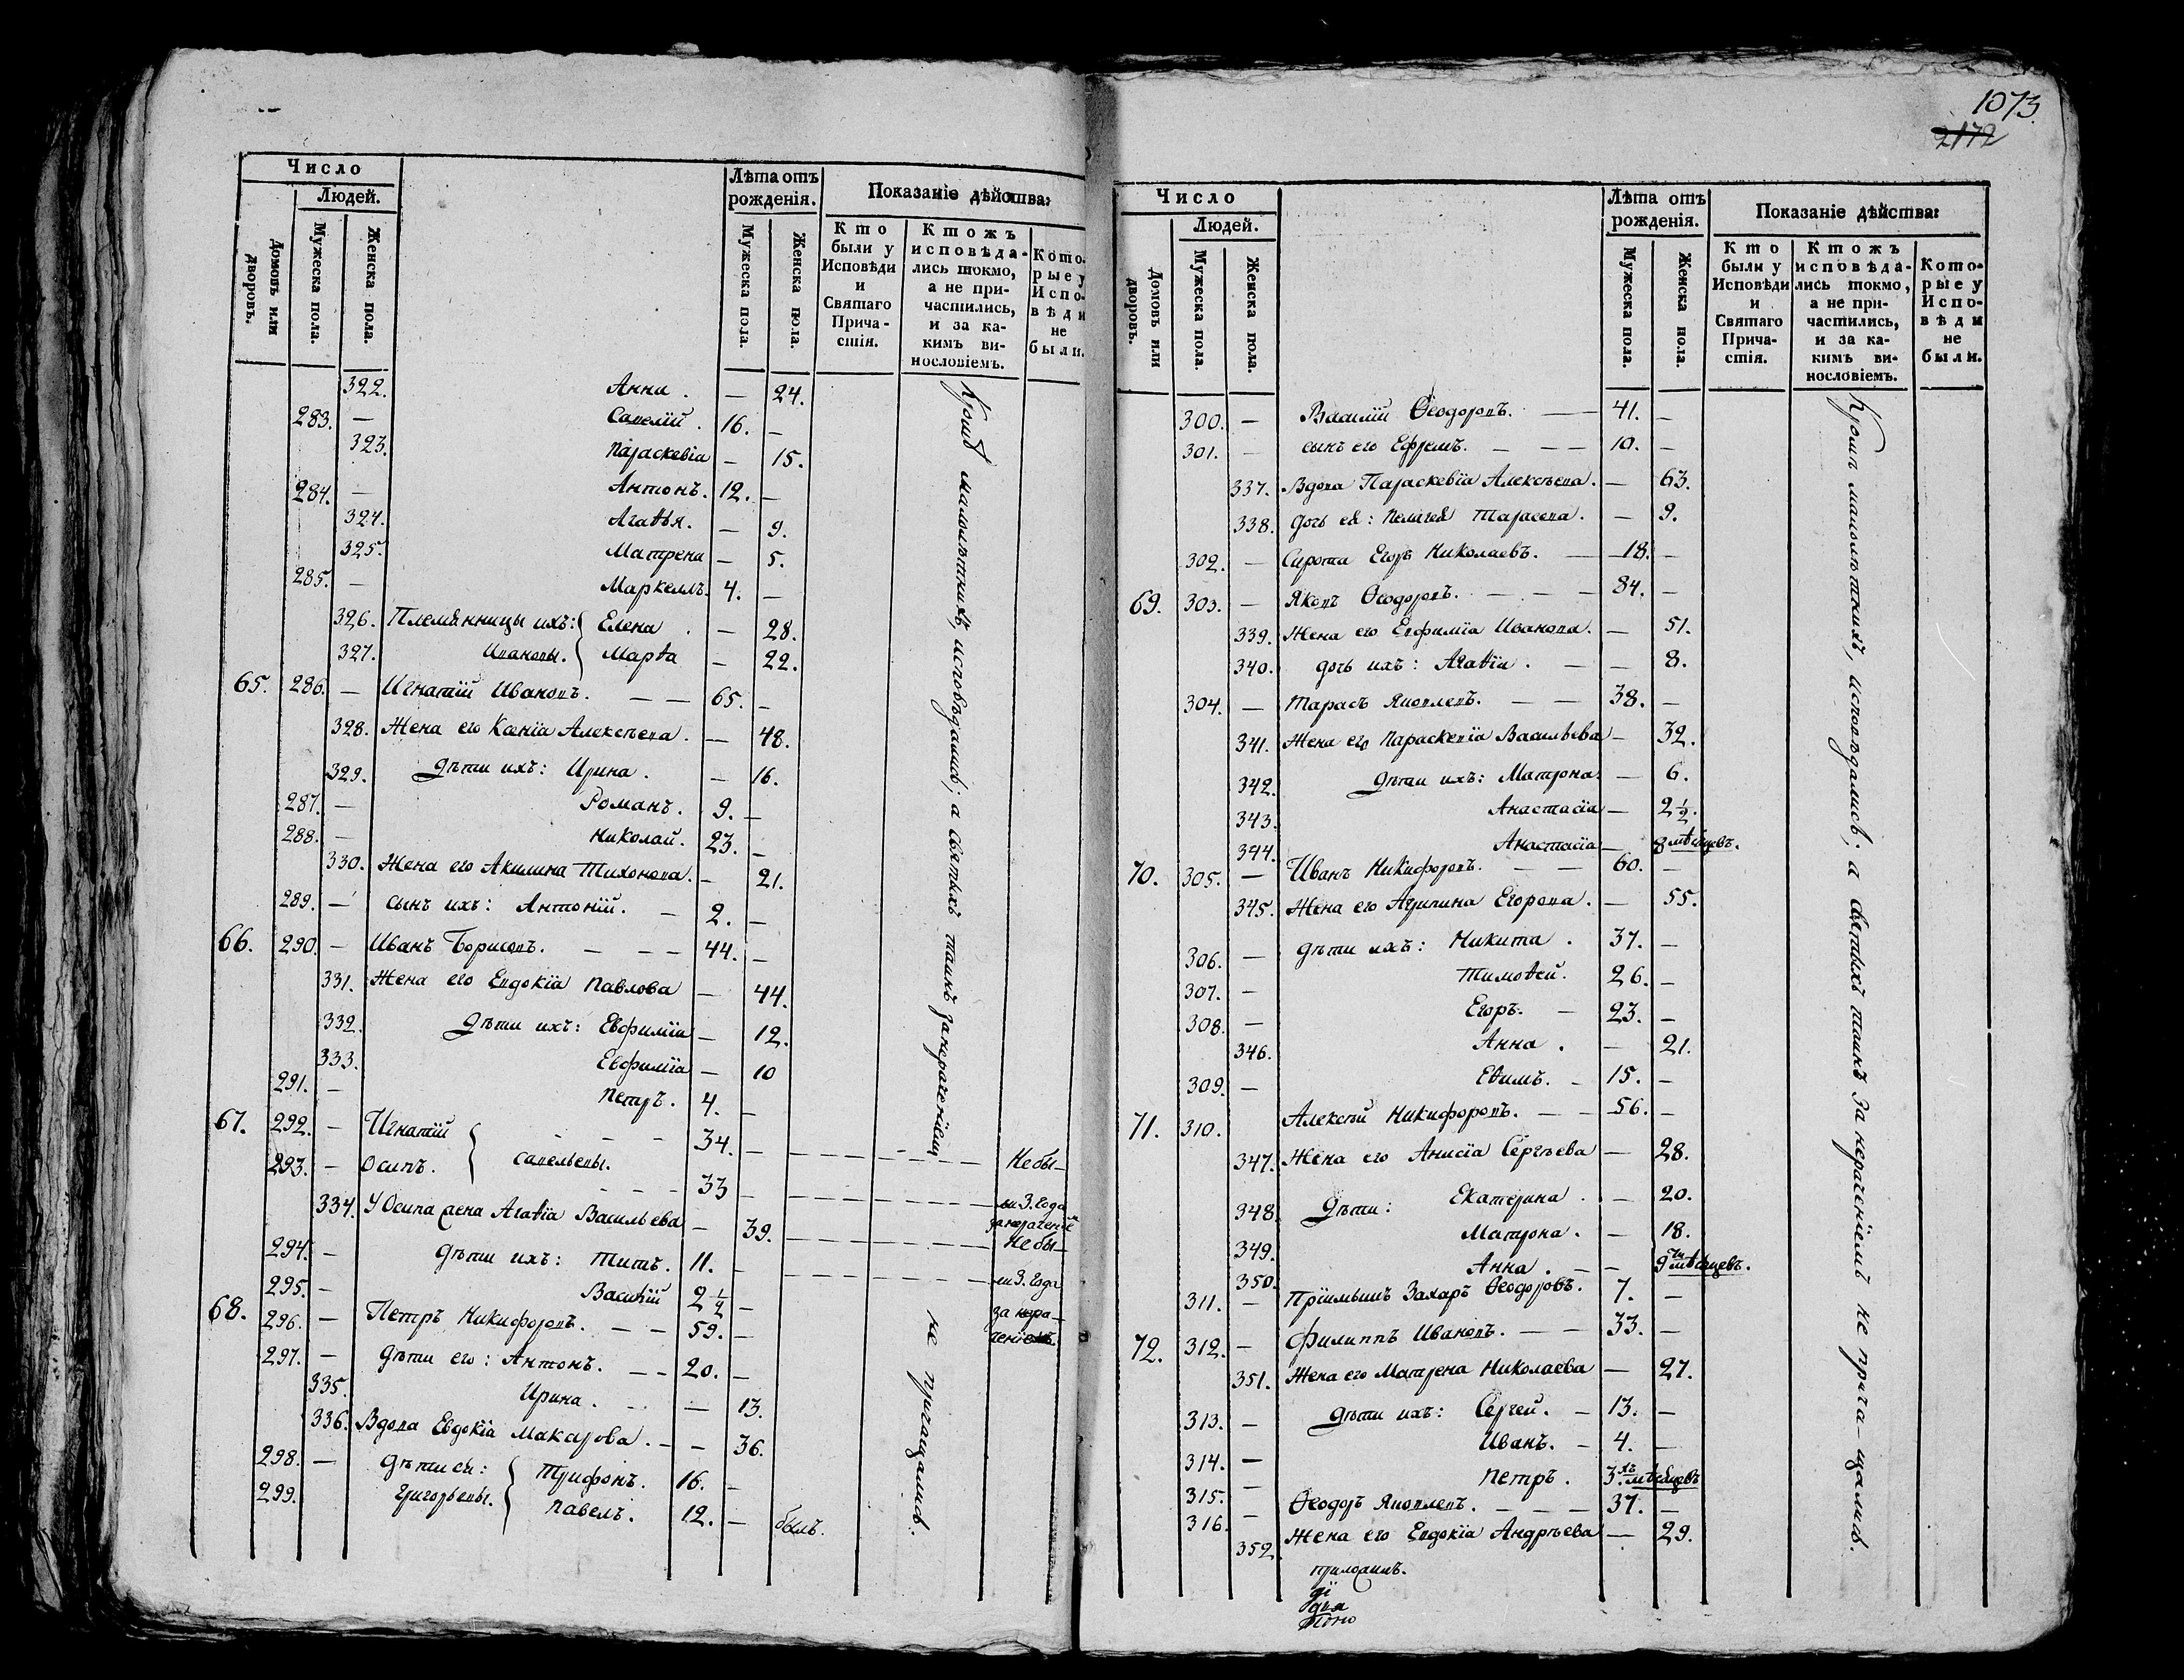 1073.
2172
Число
Людей.
Домовъ или дворовъ.
Мужеска пола.
Женска пола.
Лѣта отъ рожденія.
Мужеска пола.
Женска пола.
Показаніе дѣйства:
Кто были у Исповѣди и Святаго Прича-стія.
Ктожъ исповѣда-лись токмо, а не при-частились, и за ка-кимъ ви-нословіемъ.
Кото-рые у Испо-вѣди не были.
322. Анна . — 24.
283. — Савелій . 16. —
323. Параскевіа — 15.
284. — Антонъ. 12. —
324. Агаѳья. — 9.
325. Матрена — 5.
285. — Маркеллъ. 4. —
326. Племянницы ихъ: Елена . — 28.
327. Ивановы. Марѳа — 22.
65. 286. — Игнатій Ивановъ. — — 65. —
328. Жена его Ксеніа Алексѣева . — 48.
329. Дѣти ихъ: Ирина . — 16.
287. — Романъ . 9. —
288. — Николай. 23. —
330. Жена его Акилина Тихонова . — 21.
289. — сынъ ихъ: Антоній. — 2. —
66. 290. — Иванъ Борисовъ. — — — 44. —
331. Жена его Евдокіа Павлова — 44.
332. Дѣти ихъ: Евфиміа — 12.
333. Евфиміа — 10
291. — Петръ. 4. —
67. 292. — Игнатій — — — 34. — Небы-
293. — Осипъ. Савельевы. — — — 33 — ли 3. года
334. У Осипа жена Агаѳіа Васильева — 39. за нераченіемъ
Небы-
294. — Дѣти ихъ: Титъ. 11. — ли 3. года
295. — Василій 2 1/2 — за нера-
68. 296. — Петръ Никифоровъ. — — 59. — ченіемъ.
297. — Дѣти его: Антонъ. — — 20. —
335. Ирина . — — 13.
336. Вдова Евдокіа Макарова . — — 36.
298. — Дѣти ей: Трифонъ. 16. —
299. Григорьевы. Павелъ. 12. — былъ.
Кромѣ малолѣтнихъ, исповѣдались; а святыхъ таинъ за нераченіемъ не причащались.
Число
Людей.
Домовъ или дворовъ.
Мужеска пола.
Женска пола.
Лѣта отъ рожденія.
Мужеска пола.
Женска пола.
Показаніе дѣйства:
Кто были у Исповѣди и Святаго Прича-стія.
Ктожъ исповѣда-лись токмо, а не при-частились, и за ка-кимъ ви-нословіемъ.
Кото-рые у Испо-вѣди не были.
300. — Василій Ѳеодоровъ. — — 41. —
301. — сынъ его Ефремъ. — — — 10. —
337. Вдова Параскевіа Алексѣева . — 63.
338. дочь ея: Пелагея Тарасова . — 9.
302. — Сирота Егоръ Николаевъ. — 18. —
69. 303. — Яковъ Ѳеодоровъ. — — — 84. —
339. Жена его Евфиміа Иванова. — 51.
340. дочь ихъ: Агаѳіа . — — 8.
304. — Тарасъ Яковлевъ. — — 38. —
341. Жена его Параскевіа Васильева — 32.
342. Дѣти ихъ: Матрона. — 6.
343. Анастасіа — 2 1/2.
344. Анастасіа — 8 мѣсяцевъ.
70. 305. — Иванъ Никифоровъ. — — 60. —
345. Жена его Агрипина Егорова . — 55.
306. — Дѣти ихъ: Никита . 37. —
307. — Тимоѳей. 26. —
308. — Егоръ. — 23. —
346. Анна . — 21.
309. — Еѳимъ. — 15. —
71. 310. Алексѣй Никифоровъ. — — 56. —
347. Жена его Анисіа Сергѣева — 28.
348 Дѣти: Екатерина . — 20.
349. Матрона . — 18.
350. Анна . — — 9 мѣсяцевъ.
311. — Пріимышъ Захаръ Ѳеодоровъ. 7. —
72. 312. — Филиппъ Ивановъ. — — 33. —
351. Жена его Матрена Николаева — 27.
313. — Дѣти ихъ: Сергей. — 13. —
314. — Иванъ. — 4. —
315. — Петръ . 3.хъ мѣсяцевъ
316. — Ѳеодоръ Яковлевъ. — — — 37. —
352 Жена его Евдокіа Андрѣева — 29.
Кромѣ малолѣтнихъ, исповѣдались; а святыхъ таинъ за нераченіемъ не прича-щались.